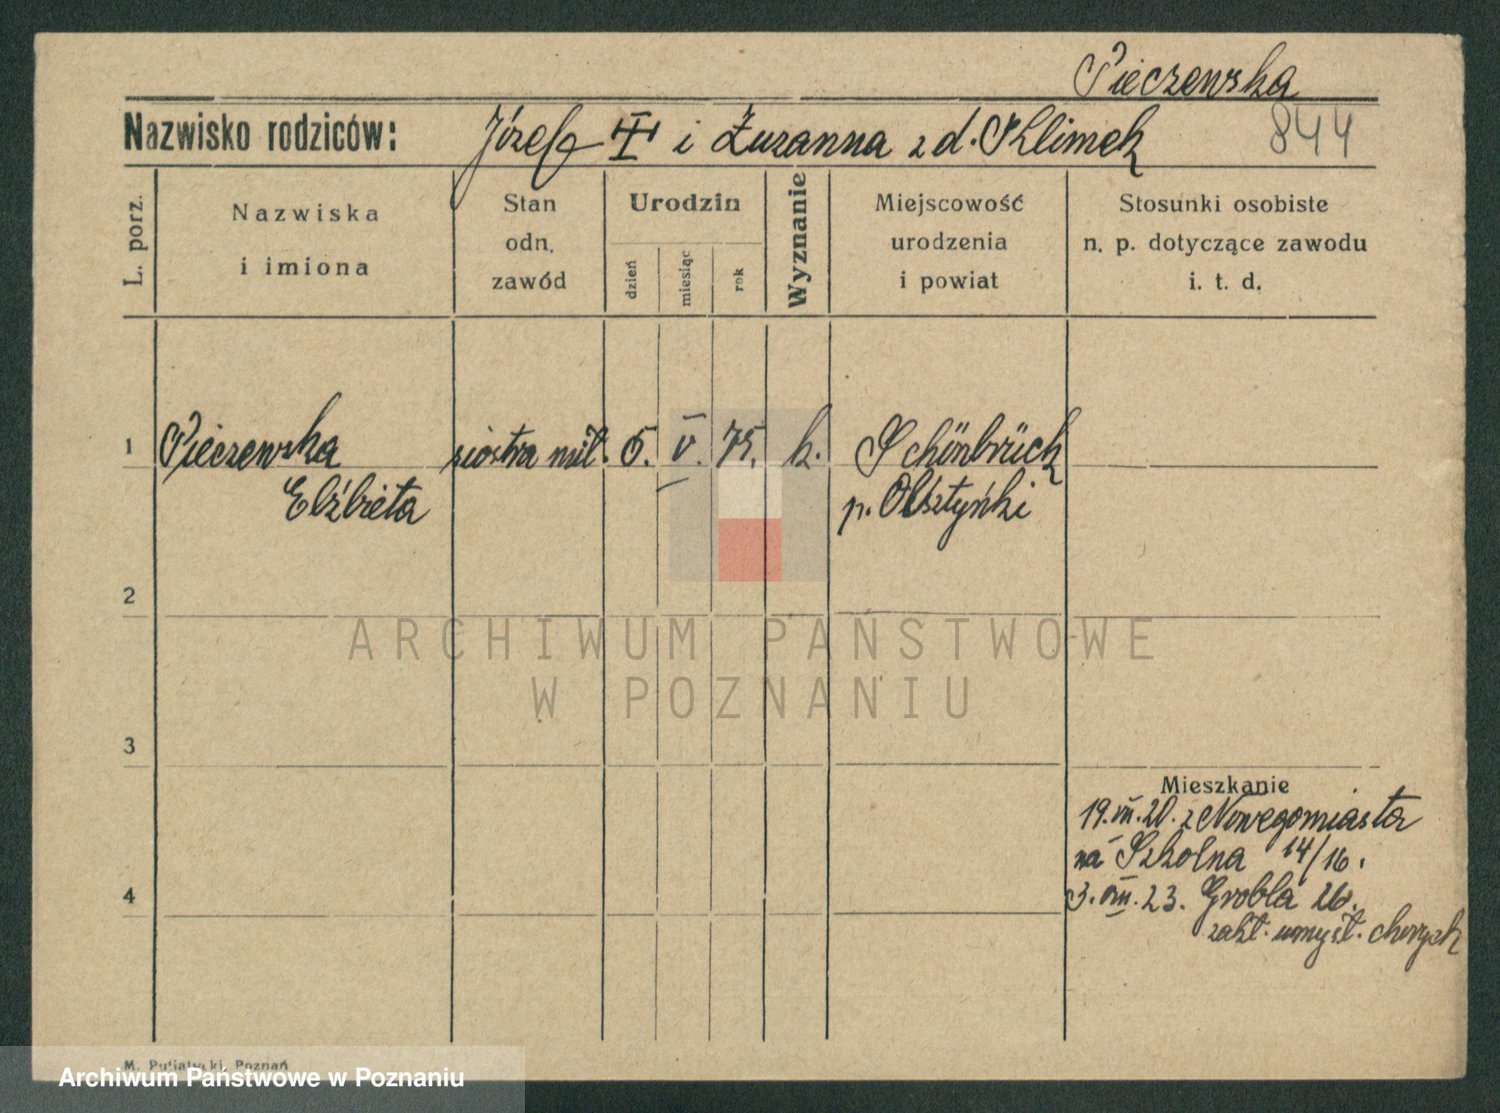 Pieczewska
Nazwisko rodziców: Józef i Zuzanna z d. Klimek 844
L. porz.
Nazwiska
i imiona
Stan
odn.
zawód
Urodzin
dzień
miesiąc
rok
Wyznanie
Miejscowość
urodzenia
i powiat
Stosunki osobiste
n. p. dotyczące zawodu
i. t. d.
1 Pieczewska siostra mił. 5. V. 75. k. Schönbrück
Elżbieta p. Olsztyński
2
3
4
Mieszkanie
19.VII.20. z Nowegomiasta
na Szkolna 14/16.
3.VIII.23. Grobla 26.
zakł. umysł. chorych
M. Putiatycki, Poznań
ARCHIWUM PAŃSTWOWE
W POZNANIU
Archiwum Państwowe w Poznaniu